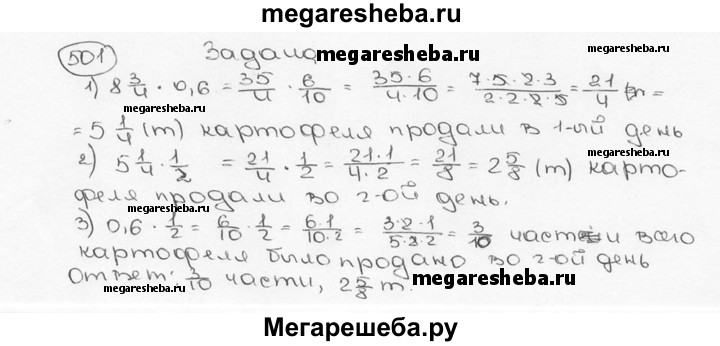 megaresheba.ru
501 Задача
megaresheba.ru
megaresheba.ru
1) 8 3/4 · 0,6 = 35/4 · 6/10 = 35·6/4·10 = 7·5·2·3/2·2·2·5 = 21/4 =
megaresheba.ru
= 5 1/4 (т) картофеля продали в 1-ый день
2) 5 1/4 · 1/2 = 21/4 · 1/2 = 21·1/4·2 = 21/8 = 2 5/8 (т) карто-
megaresheba.ru
феля продали во 2-ой день.
megaresheba.ru
3) 0,6 · 1/2 = 6/10 · 1/2 = 6·1/10·2 = 3·2·1/5·2·2 = 3/10 части всего
картофеля было продано во 2-ой день
Ответ: 3/10 части, 2 5/8 т.
megaresheba.ru
megaresheba.ru
Мегарешеба.ру